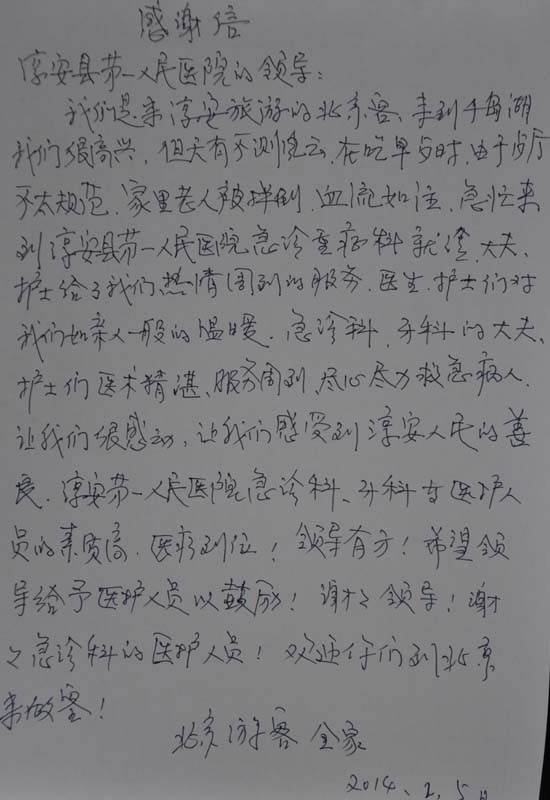 感谢信
淳安县第一人民医院的领导：
我们是来淳安旅游的北京客，来到千岛湖
我们很高兴，但天有不测风云，在吃早点时，由于步厅
不太规范，家里老人被摔倒，血流如注，急忙来
到淳安县第一人民医院急诊重症科就诊，大夫、
护士给了我们热情周到的服务，医生、护士们对
我们如亲人一般的温暖，急诊科、牙科的大夫、
护士们医术精湛、服务周到，尽心尽力救急病人，
让我们很感动，让我们感受到淳安人民的善
良，淳安第一人民医院急诊科、牙科等医护人
员的素质高，医疗到位！领导有方！希望领
导给予医护人员以鼓励！谢谢领导！谢
谢急诊科的医护人员！欢迎你们到北京
来做客！
北京游客 全家
2014、2、5日